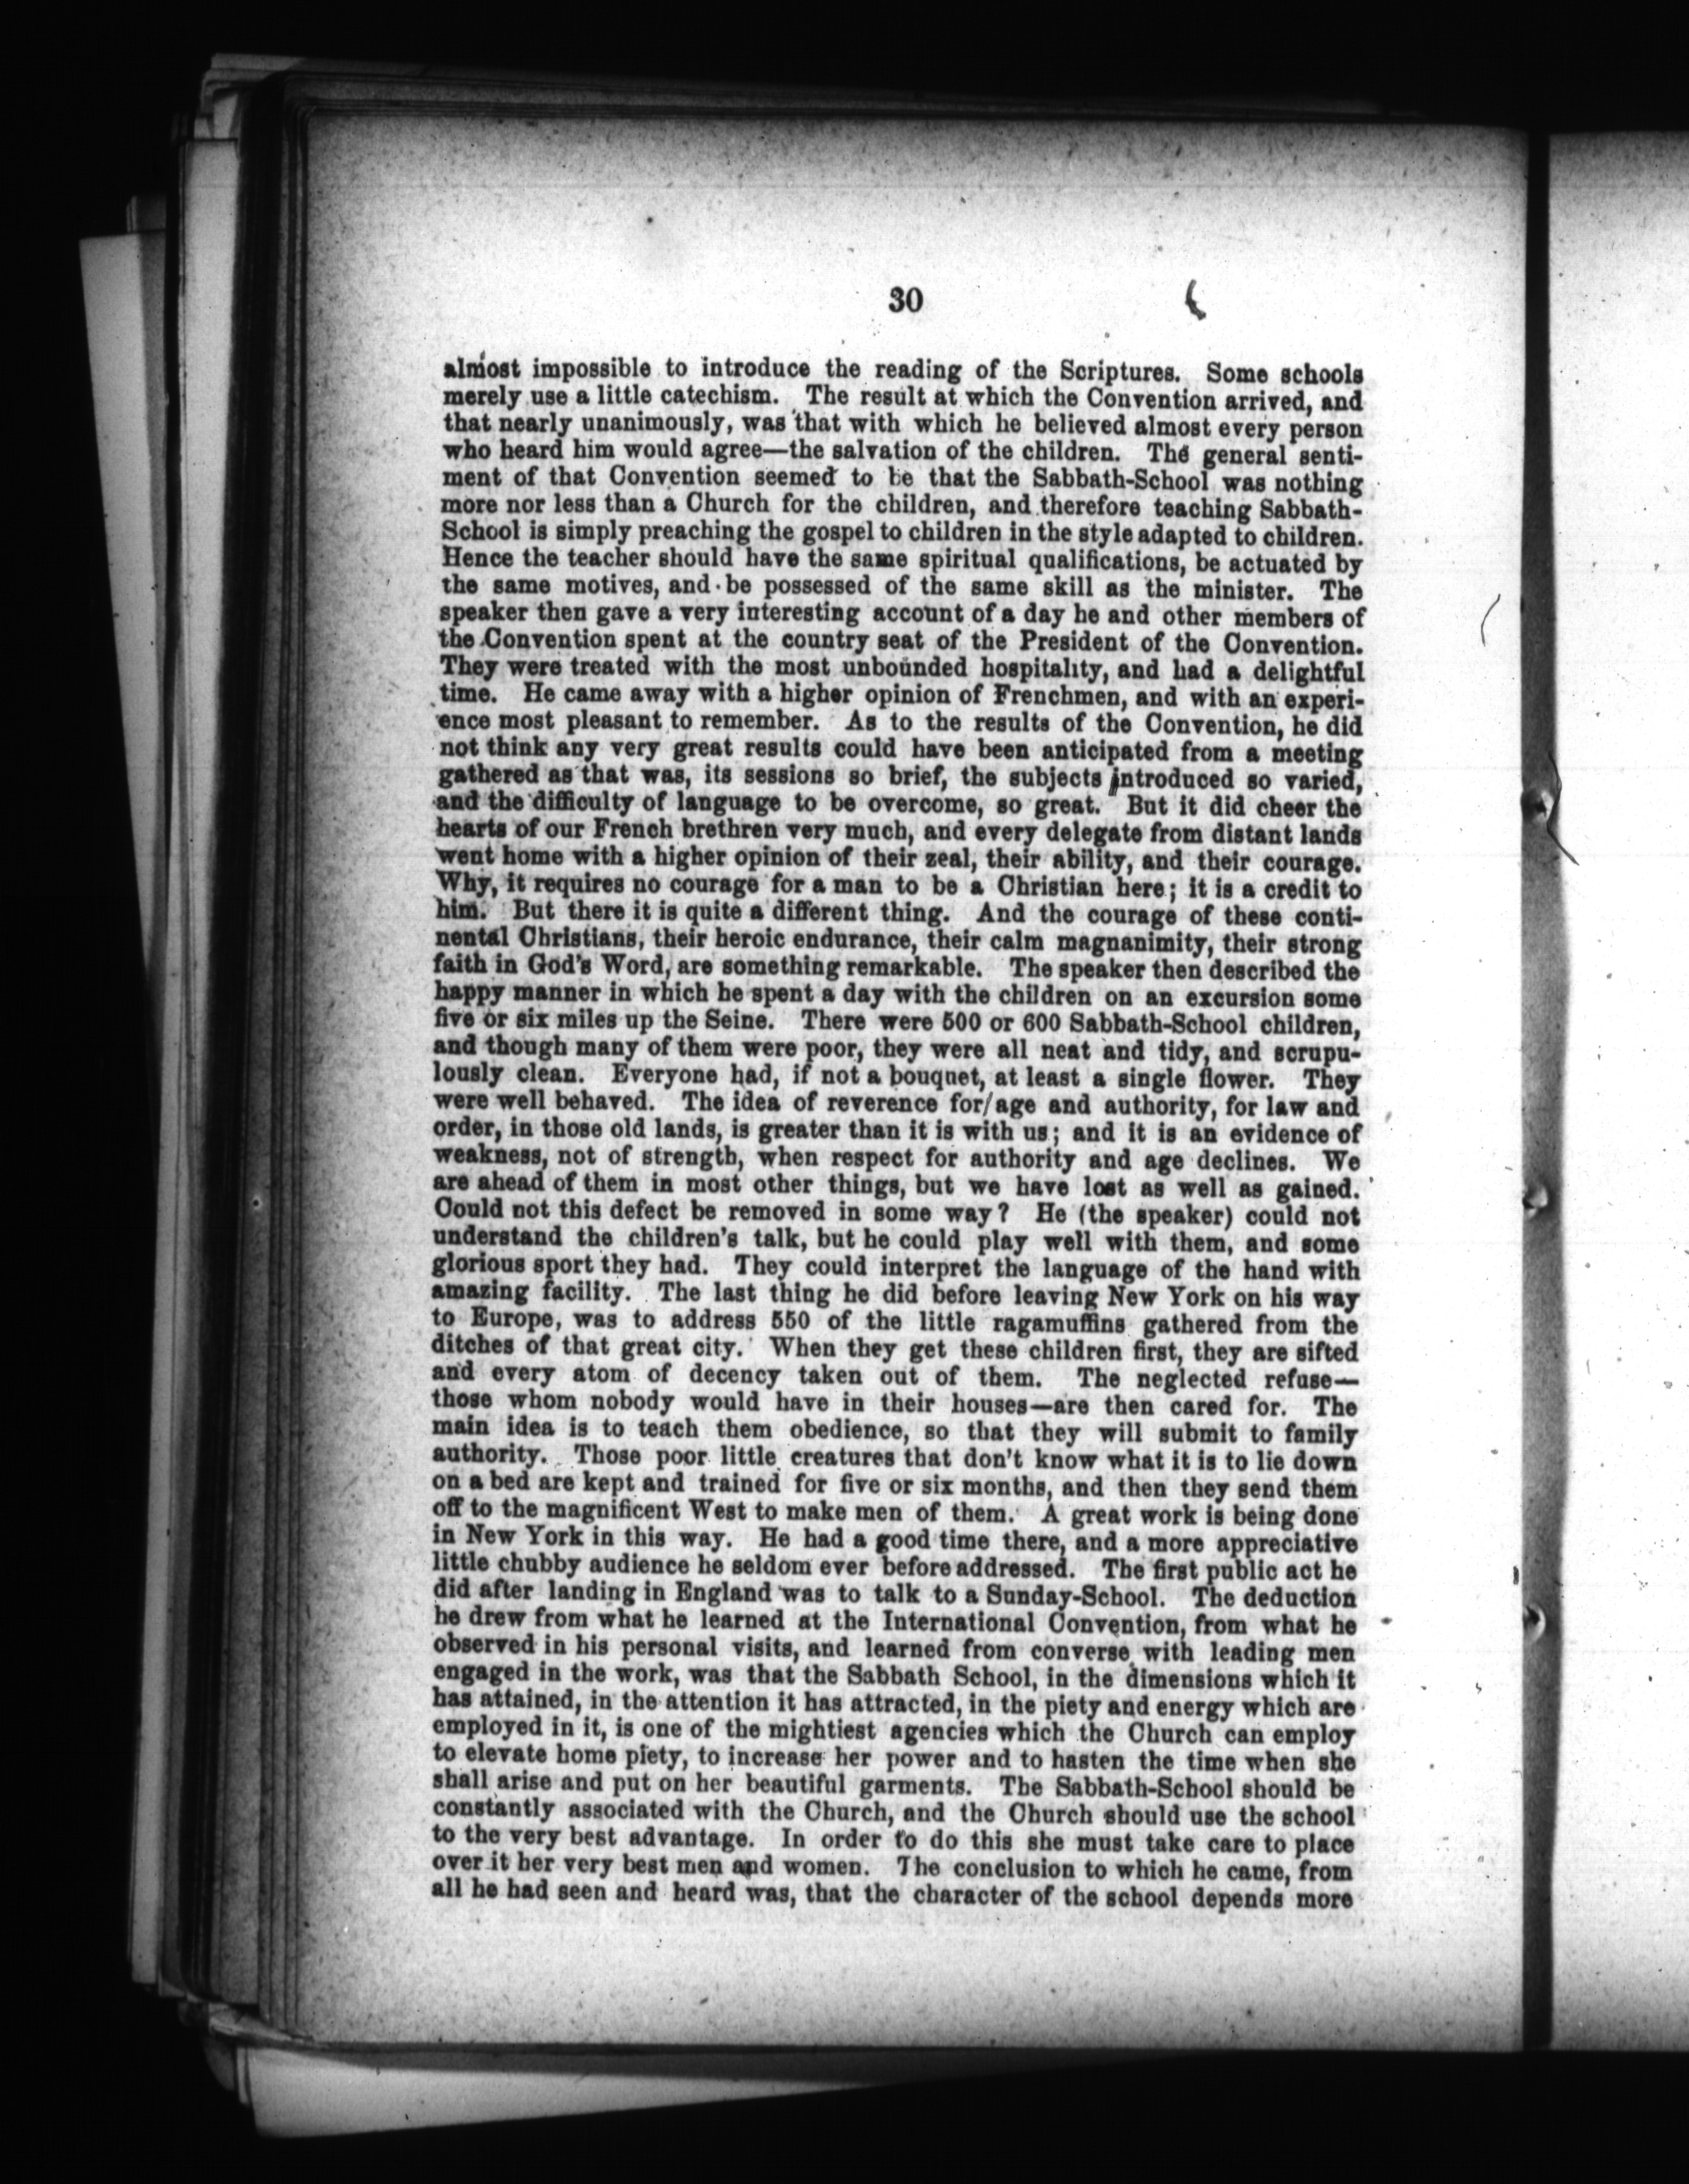 30
almost impossible to introduce the reading of the Scriptures. Some schools
merely use a little catechism. The result at which the Convention arrived, and
that nearly unanimously, was that with which he believed almost every person
who heard him would agree—the salvation of the children. The general senti-
ment of that Convention seemed to be that the Sabbath-School was nothing
more nor less than a Church for the children, and therefore teaching Sabbath-
School is simply preaching the gospel to children in the style adapted to children.
Hence the teacher should have the same spiritual qualifications, be actuated by
the same motives, and be possessed of the same skill as the minister. The
speaker then gave a very interesting account of a day he and other members of
the Convention spent at the country seat of the President of the Convention.
They were treated with the most unbounded hospitality, and had a delightful
time. He came away with a higher opinion of Frenchmen, and with an experi-
ence most pleasant to remember. As to the results of the Convention, he did
not think any very great results could have been anticipated from a meeting
gathered as that was, its sessions so brief, the subjects introduced so varied,
and the difficulty of language to be overcome, so great. But it did cheer the
hearts of our French brethren very much, and every delegate from distant lands
went home with a higher opinion of their zeal, their ability, and their courage.
Why, it requires no courage for a man to be a Christian here; it is a credit to
him. But there it is quite a different thing. And the courage of these conti-
nental Christians, their heroic endurance, their calm magnanimity, their strong
faith in God's Word, are something remarkable. The speaker then described the
happy manner in which he spent a day with the children on an excursion some
five or six miles up the Seine. There were 500 or 600 Sabbath-School children,
and though many of them were poor, they were all neat and tidy, and scrupu-
lously clean. Everyone had, if not a bouquet, at least a single flower. They
were well behaved. The idea of reverence for age and authority, for law and
order, in those old lands, is greater than it is with us; and it is an evidence of
weakness, not of strength, when respect for authority and age declines. We
are ahead of them in most other things, but we have lost as well as gained.
Could not this defect be removed in some way? He (the speaker) could not
understand the children's talk, but he could play well with them, and some
glorious sport they had. They could interpret the language of the hand with
amazing facility. The last thing he did before leaving New York on his way
to Europe, was to address 550 of the little ragamuffins gathered from the
ditches of that great city. When they get these children first, they are sifted
and every atom of decency taken out of them. The neglected refuse—
those whom nobody would have in their houses—are then cared for. The
main idea is to teach them obedience, so that they will submit to family
authority. Those poor little creatures that don't know what it is to lie down
on a bed are kept and trained for five or six months, and then they send them
off to the magnificent West to make men of them. A great work is being done
in New York in this way. He had a good time there, and a more appreciative
little chubby audience he seldom ever before addressed. The first public act he
did after landing in England was to talk to a Sunday-School. The deduction
he drew from what he learned at the International Convention, from what he
observed in his personal visits, and learned from converse with leading men
engaged in the work, was that the Sabbath School, in the dimensions which it
has attained, in the attention it has attracted, in the piety and energy which are
employed in it, is one of the mightiest agencies which the Church can employ
to elevate home piety, to increase her power and to hasten the time when she
shall arise and put on her beautiful garments. The Sabbath-School should be
constantly associated with the Church, and the Church should use the school
to the very best advantage. In order to do this she must take care to place
over it her very best men and women. The conclusion to which he came, from
all he had seen and heard was, that the character of the school depends more